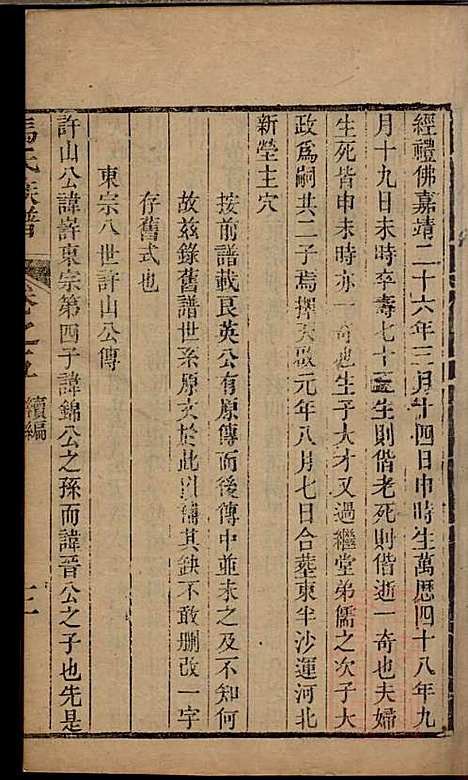 經禮佛嘉靖二十六年三月十四日申時生萬曆四十八年九
月十九日未時卒壽七十三生則偕老死則偕逝一奇也夫婦
生死皆申未時亦一奇也生子大才又過繼堂弟儒之次子大
政爲嗣共二子焉擇天啟元年八月七日合塟東半沙運河北
新塋主穴
按前譜載良英公有原傳而後傳中並未之及不知何
故兹錄舊譜世系原文於此以補其缺不敢刪改一字
存舊式也
東宗八世許山公傳
許山公諱嵜東宗第四子諱錦公之孫而諱晉公之子也先是
馬氏族譜
卷之五
續編